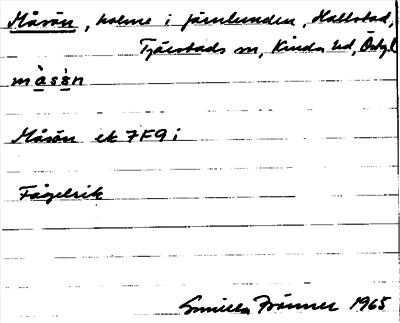 Måsön, holme i Järnlunden, Hallstad,
Tjärstads sn, Kinda hd, Östgl
måssn
Måsön ek 7F9i
Fågelrik
Gunilla Fränner 1965